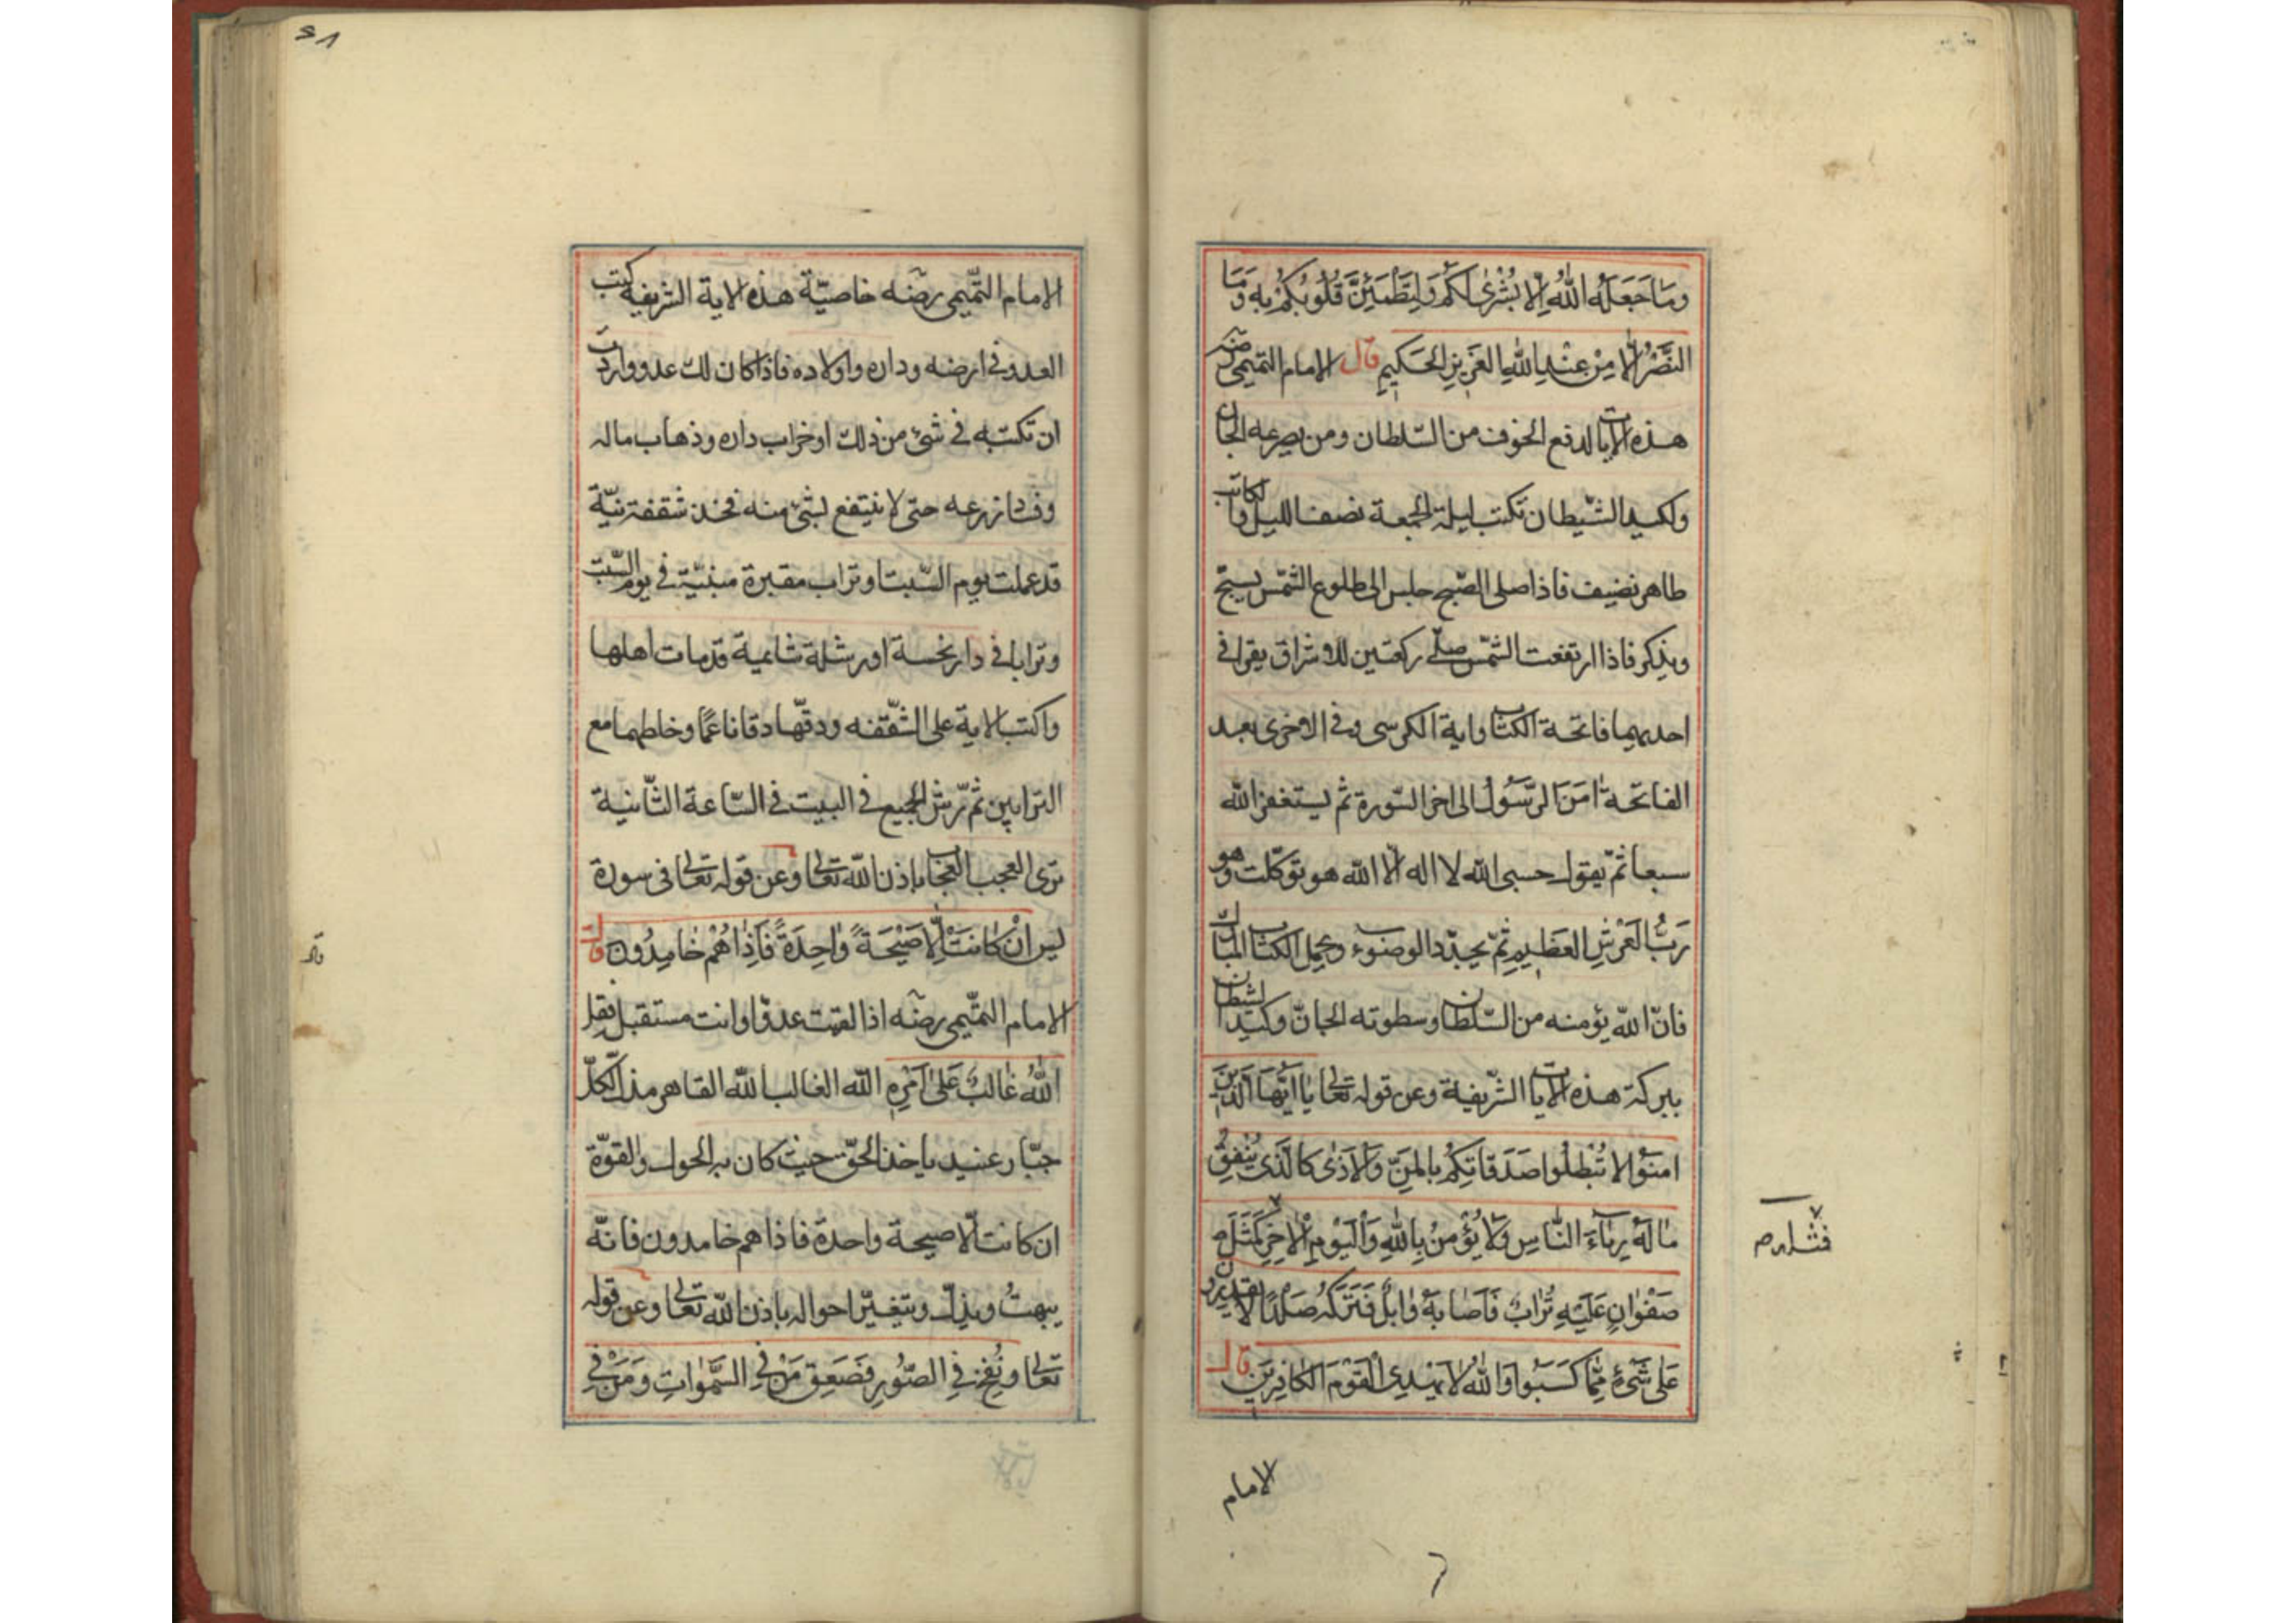 وَمَا جَعَلَهُ اللّٰهُ اِلَّا بُشْرٰى لَكُمْ وَلِتَطْمَئِنَّ قُلُوبُكُمْ بِهِ وَمَا
النَّصْرُ اِلَّا مِنْ عِنْدِ اللّٰهِ الْعَزِيزِ الْحَكِيمِ قال الامام التميمى رضه
هذه الايات لدفع الخوف من السّلطان ومن يصرعه الجان
ولكيد الشّيطان تكتب ليلة الجمعة نصف الليل والكاتب
طاهر نضيف فاذا صلى الصّبح جلس الى طلوع الشّمس يسبّح
ويذكر فاذا ارتفعت الشّمس صلّى ركعتين للاشراق يقرا فى
احديهما فاتحة الكتاب واية الكرسى وفى الاخرى بعد
الفاتحة اٰمَنَ الرَّسُولُ الى اخر السّورة ثم يستغفر الله
سبعا ثمّ يقول حسبى الله لا اله الا الله هو توكّلت وهو
رَبُّ الْعَرْشِ الْعَظِيمِ ثمّ يجدّد الوضوء ويحمل الكتاب المبارك
فانّ الله يؤمنه من السّلطان وسطوته الجانّ وكيد الشيطان
ببركة هذه الايات الشّريفة وعن قوله تعالى يَا اَيُّهَا الَّذِينَ
اٰمَنُوا لَا تُبْطِلُوا صَدَقَاتِكُمْ بِالْمَنِّ وَالْاَذٰى كَالَّذِى يُنْفِقُ
مَالَهُ رِئَاءَ النَّاسِ وَلَا يُؤْمِنُ بِاللّٰهِ وَالْيَوْمِ الْاٰخِرِ كَمَثَلِ
صَفْوَانٍ عَلَيْهِ تُرَابٌ فَاَصَابَهُ وَابِلٌ فَتَرَكَهُ صَلْدًا لَا يَقْدِرُونَ
عَلٰى شَىْءٍ مِمَّا كَسَبُوا وَاللّٰهُ لَا يَهْدِى الْقَوْمَ الْكَافِرِينَ قال
الامام
فمثله
الامام التّميمى رضه خاصيّة هذه الاية الشريفة كتب
العدو فى ارضه وداره واولاده فاذا كان لك عدو واردت
ان تكتبه فى شىء من ذلك او خراب داره وذهاب ماله
وفساد زرعه حتى لا ينتفع بشىء منه فخذ شقفة نيّة
قد عملت يوم السّبت وتراب مقبرة مبنيّة فى يوم السّبت
وترابا فى دار نحسة قد مات اهلها
واكتب الاية على الشّقفه ودقّها دقا ناعمًا وخلطهما مع
الترابين ثم ترّش الجميع فى البيت فى السّاعة الثّانية
ترى العجب العجاب باذن الله تعالى وعن قوله تعالى فى سورة
يس اِنْ كَانَتْ اِلَّا صَيْحَةً وَاحِدَةً فَاِذَا هُمْ خَامِدُونَ قال
الامام التّميمى رضه اذا لقيت عدوّا وانت مستقبل فقل
اللّٰهُ غَالِبٌ عَلٰى اَمْرِهِ الله الغالب الله القاهر مذل كلّ
جبّار عنيد ياخذ الحقّ حيث كان به الحول والقوّة
ان كانت الّا صيحة واحدة فاذا هم خامدون فانّه
يبهتُ ويذلّ ويتغيّر احواله باذن الله تعالى وعن قوله
تعالى وَنُفِخَ فِى الصُّورِ فَصَعِقَ مَنْ فِى السَّمٰوَاتِ وَمَنْ فِى